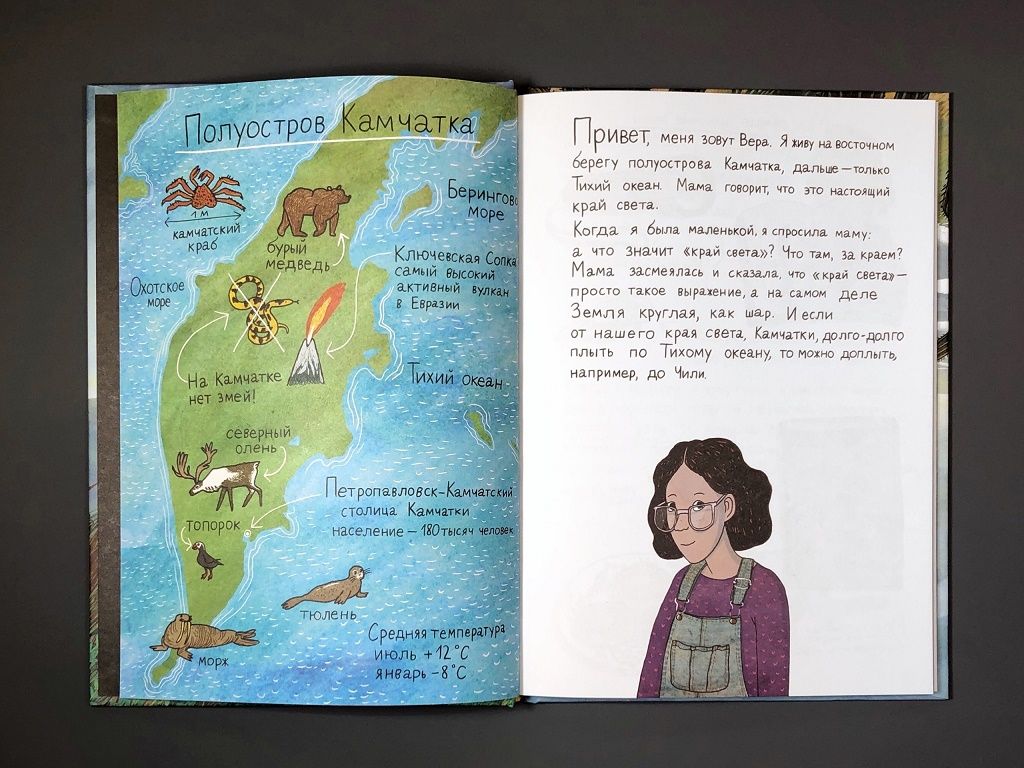 Полуостров Камчатка
1 м
камчатский
краб
бурый
медведь
Берингово
море
Ключевская Сопка
самый высокий
активный вулкан
в Евразии
Охотское
море
Тихий океан
На Камчатке
нет змей!
северный
олень
Петропавловск-Камчатский
столица Камчатки
население — 180 тысяч человек
топорок
тюлень
морж
Средняя температура
июль +12°C
январь -8°C
Привет, меня зовут Вера. Я живу на восточном
берегу полуострова Камчатка, дальше — только
Тихий океан. Мама говорит, что это настоящий
край света.
Когда я была маленькой, я спросила маму:
а что значит «край света»? Что там, за краем?
Мама засмеялась и сказала, что «край света» —
просто такое выражение, а на самом деле
Земля круглая, как шар. И если
от нашего края света, Камчатки, долго-долго
плыть по Тихому океану, то можно доплыть,
например, до Чили.